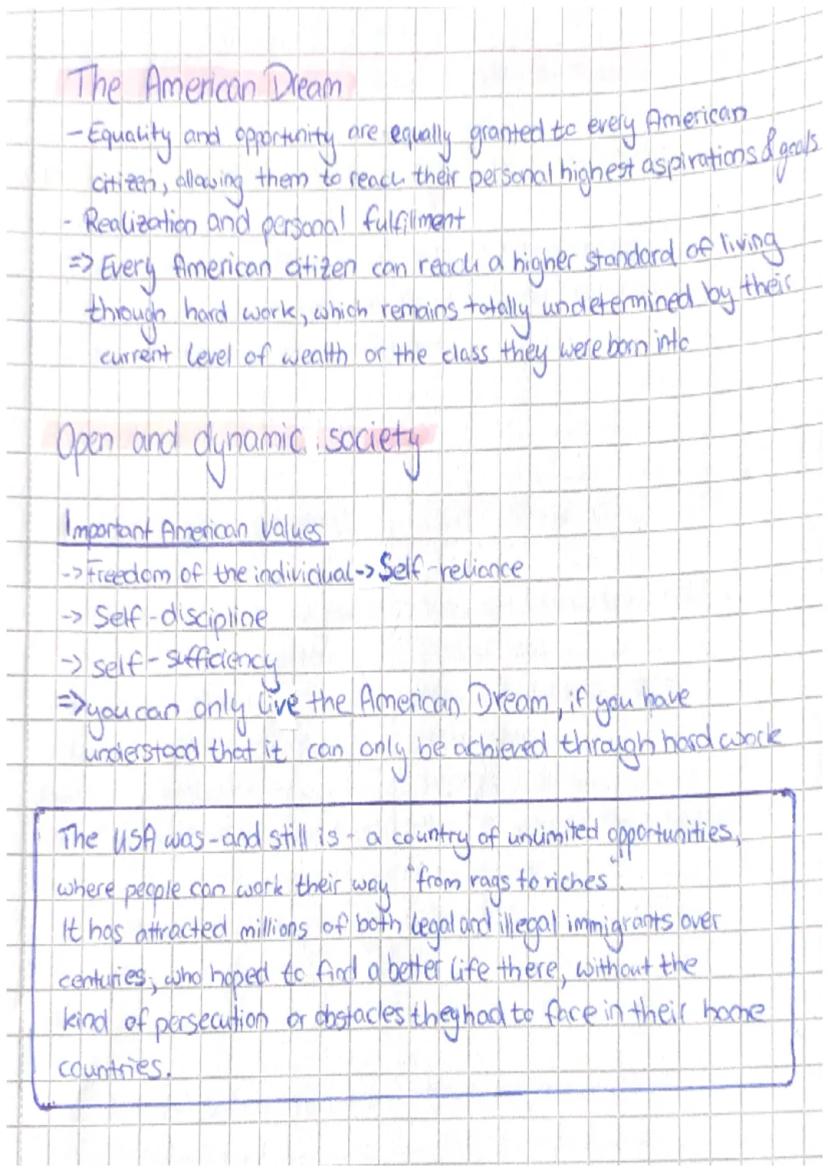 The American Dream
- Equality and opportunity are equally granted to every American
citizen, allowing them to reach their personal highest aspirations & goals
- Realization and personal fulfillment
=> Every American citizen can reach a higher standard of living
through hard work, which remains totally undetermined by their
current level of wealth or the class they were born into
Open and dynamic society
Important American Values
-> Freedom of the individual -> Self-reliance
-> Self-discipline
-> self-sufficiency
=> you can only live the American Dream, if you have
understood that it can only be achieved through hard work
The USA was - and still is - a country of unlimited opportunities,
where people can work their way "from rags to riches".
It has attracted millions of both legal and illegal immigrants over
centuries, who hoped to find a better life there, without the
kind of persecution or obstacles they had to face in their home
countries.